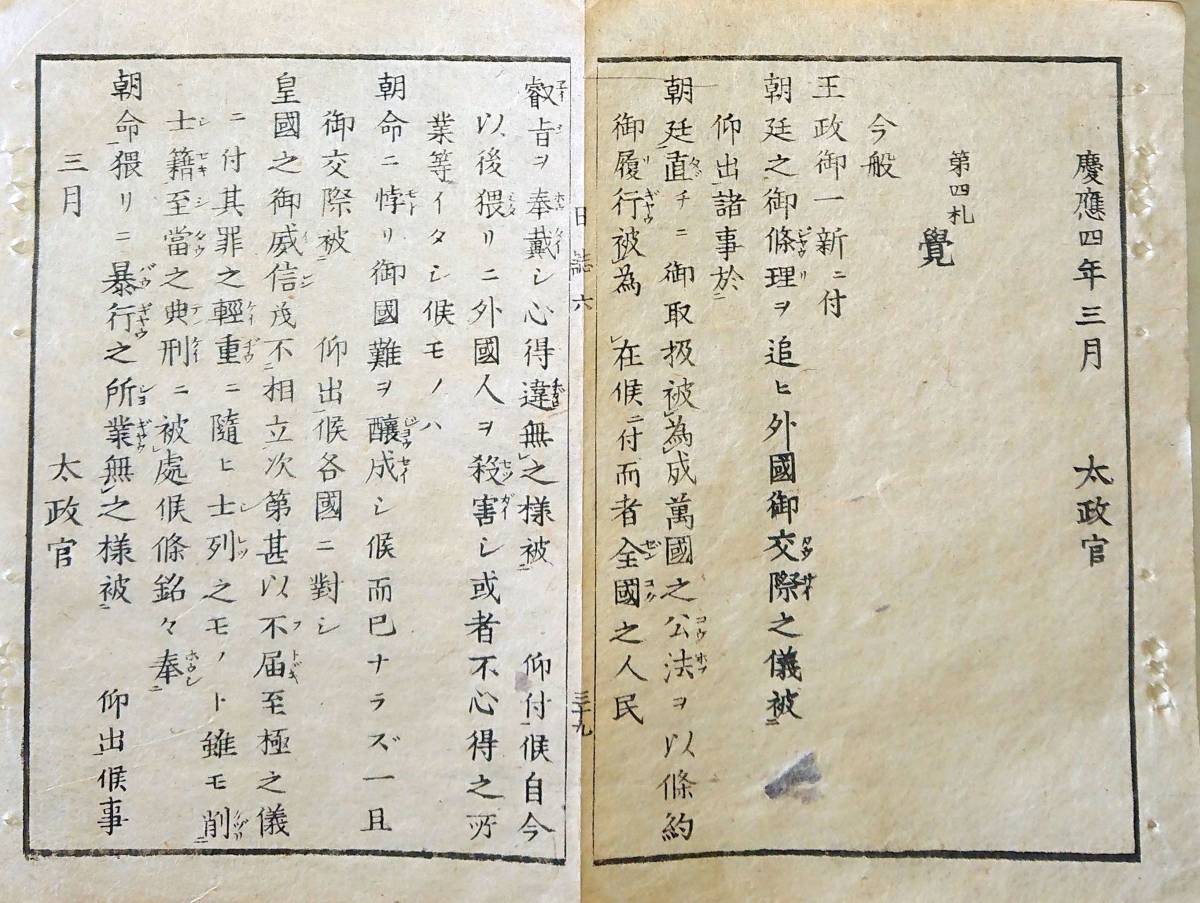 慶應四年三月　太政官
第四札
覺
今般
王政御一新ニ付
朝廷之御條理ヲ追ヒ外國御交際之儀被
仰出諸事於
朝廷直チニ御取扱被為成萬國之公法ヲ以條約
御履行被為　在候ニ付而者全國之人民
日誌六　三十九
叡旨ヲ奉戴シ心得違無之様被　仰付候自今
以後猥リニ外國人ヲ殺害シ或者不心得之所
業等イタシ候モノハ
朝命ニ悖リ御國難ヲ釀成シ候而已ナラズ一旦
御交際被　仰出候各國ニ對シ
皇國之御威信茂不相立次第甚以不届至極之儀
ニ付其罪之輕重ニ隨ヒ士列之モノト雖モ削
士籍至當之典刑ニ被處候條銘々奉
朝命猥リニ暴行之所業無之様被　仰出候事
三月　太政官